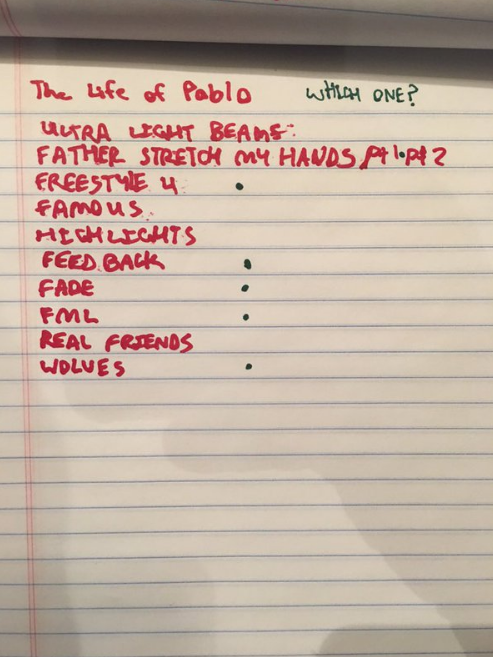 The Life of Pablo WHICH ONE?
ULTRA LIGHT BEAMS.
FATHER STRETCH MY HANDS pt 1 • pt 2
FREESTYLE 4 •
FAMOUS.
HIGHLIGHTS
FEEDBACK •
FADE •
FML •
REAL FRIENDS
WOLVES •